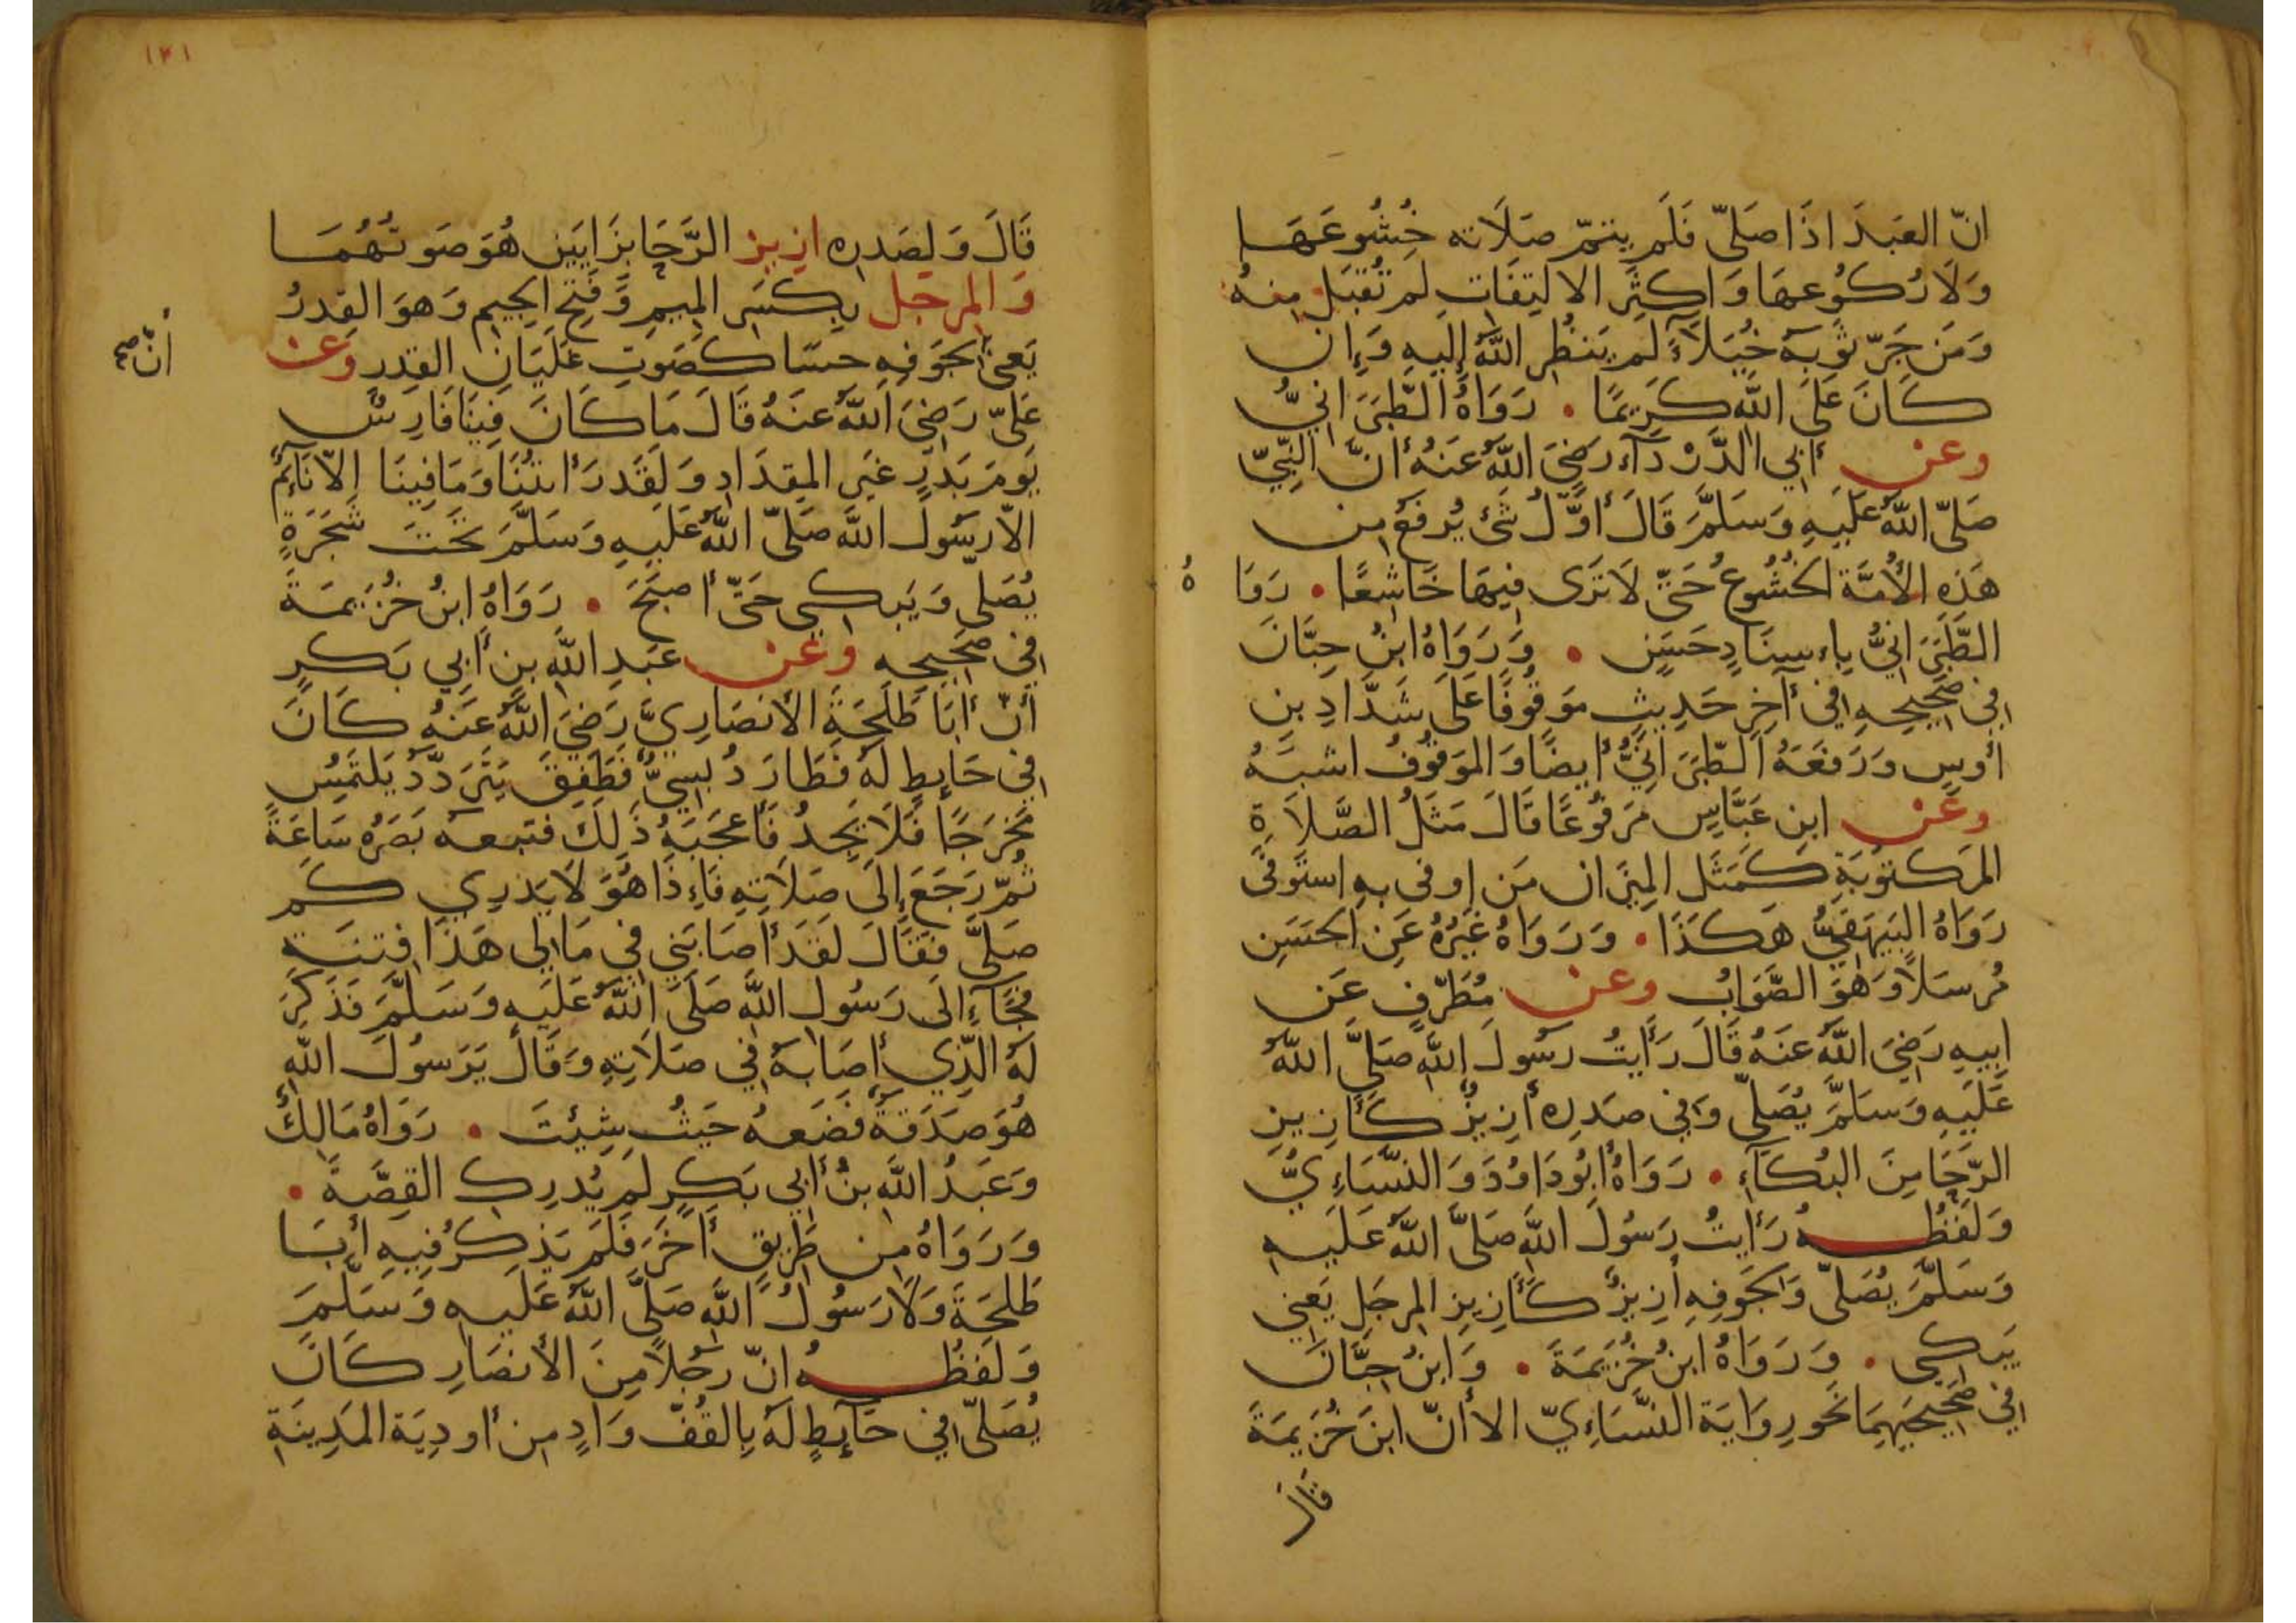 انّ العَبدَ اذَا صَلىّ فَلَم يتمّ صَلَاته خُشُوعَهَا
وَلَا رُكُوعهَا وَاكثَرِ الالتِفَاتِ لم تُقبَل منهُ
وَمَن جَرّ ثوبَهُ خُيَلَآءً لَم يَنظُرِ اللهُ إليهِ وَإِن
كَانَ عَلَى اللهِ كَرِيمًا . رَوَاهُ الطّبَرَانيُّ
وعن أبي الدَّرْدَآءِ رَضِيَ اللهُ عَنهُ أنَّ النَّبِيّ
صَلىّ اللهُ عَلَيهِ وَسَلَّمَ قَالَ أوَّلُ شَئ يُرفَعُ مِن
هَذِهِ الأُمَّة الخُشُوعُ حَتّى لَا تَرَى فِيهَا خَاشِعًا . رَوَا
هُ
الطَّبَرَانيُّ بِاءسنَادٍ حَسَنٍ . وَرَوَاهُ ابنُ حِبَّانَ
في صَحِيحِهِ في آخِرِ حَدِيثٍ مَوقُوفًا عَلَى شَدَّادِ بنِ
أوسٍ وَرَفَعَهُ الطّبَرَانيُّ أيضًا وَالمَوقُوفُ اشبَهُ
وعن ابنِ عَبَّاسٍ مَرفُوعًا قَالَ مَثَلُ الصَّلَاةِ
المَكتُوبَةِ كَمَثَل المِيزَان مَن اوفى بهِ استَوفى
رَوَاهُ البَيهَقيُّ هَكَذَا . وَرَوَاهُ غَيرُهُ عَنِ الحَسَنِ
مُرسَلًا وَهوَ الصَّوَابُ وعن مُطَرّفٍ عَن
ابيهِ رَضِيَ اللهُ عَنهُ قَالَ رَأيتُ رَسُولَ اللهِ صَلىَّ اللهُ
عَلَيهِ وَسَلَّمَ يُصَلىّ وَفي صَدرِه أزِيزٌ كَأَزِيزِ
الرّحَا مِنَ البُكَآءِ . رَوَاهُ ابُودَاوُدَ وَالنَّسَاءِيُّ
وَلَفظُهُ رَأيتُ رَسُولَ اللهِ صَلىَّ اللهُ عَلَيهِ
وَسَلَّمَ يُصَلىّ وَلجَوفِهِ أزِيزٌ كَأَزِيزِ المِرجَلِ يَعني
يَبكي . وَرَوَاهُ ابنُ خُزَيمَةَ . وَابنُ حِبَّانَ
في صَحِيحَيهِمَا نَحوَ رِوَايَة النَّسَاءِيّ الا أنّ ابنَ خُزَيمَةَ
قَالَ
١٢١
قَالَ وَلِصَدرِه ازيز الرَّحَا بزَايَين هُوَ صَوتهُمَا
وَالمِرجَل بِكَسرِ المِيمِ وَفَتحِ الجِيمِ وَهوَ القِدرُ
يَعني لجَوفِهِ حسّا كَصَوتِ غَلَيَانِ القِدرِ وَعن
أنّ صح
عَليّ رَضِيَ اللهُ عَنهُ قَالَ مَا كَانَ فِينَا فَارِسٌ
يَومَ بَدرٍ غَيرِ المِقدَادِ وَلَقَد رَأيتُنَا وَمَا فِينَا إلاّ نَائِمٌ
الاّ رَسُولَ اللهِ صَلىّ اللهُ عَلَيهِ وَسَلَّمَ تَحتَ شَجَرَةٍ
يُصَلى وَيَبكي حَتىّ أصبَحَ . رَوَاهُ ابنُ خُزَيمَةَ
في صَحِيحِهِ وعن عَبدِ اللهِ بنِ أبي بَكرٍ
أنّ أبَا طَلحَةَ الأنصَارِيَّ رَضِيَ اللهُ عَنهُ كَانَ
في حَايطٍ لَهُ فَطَارَ دُبسِيُّ فَطَفِقَ يَتَرَدَّدُ يَلتَمِسُ
مَخرَجًا فَلَا يَجِدُ فَأعجَبَهُ ذَلِكَ فتبعهُ بَصَرُهُ سَاعَةً
ثُمّ رَجَعَ إلَى صَلَاتِهِ فَاءِذَا هُوَ لَا يَدرِي كم
صَلىَّ فقَالَ لقَد أصَابَني في مَالي هَذَا فِتنَة
فجَآءَ الَى رَسُولِ اللهِ صَلىَ اللهُ عَلَيهِ وَسَلَّمَ فَذَكَرَ
لَهُ الَّذِي أصَابَهُ في صَلَاتِهِ وَقَالَ يَرَسُولَ اللهِ
هُوَ صَدَقَةٌ فَضَعهُ حَيثُ شِئتَ . رَوَاهُ مَالِكٌ
وَعَبدُ اللهِ بنُ أبي بَكرٍ لَم يُدرِكِ القِصَّةَ .
وَرَوَاهُ مِن طَرِيقٍ أخَرَ فَلَم يَذكُر فِيهِ أبَا
طَلحَةَ وَلَا رَسُولُ اللهِ صَلىَّ اللهُ عَلَيهِ وَسَلَّمَ
وَلَفظُهُ انّ رَجُلًا مِنَ الأنصَارِ كَانَ
يُصَلىّ في حَآئِطٍ لَهُ بِالقُفّ وَادٍ مِن أودِيَة المَدِينَةِ